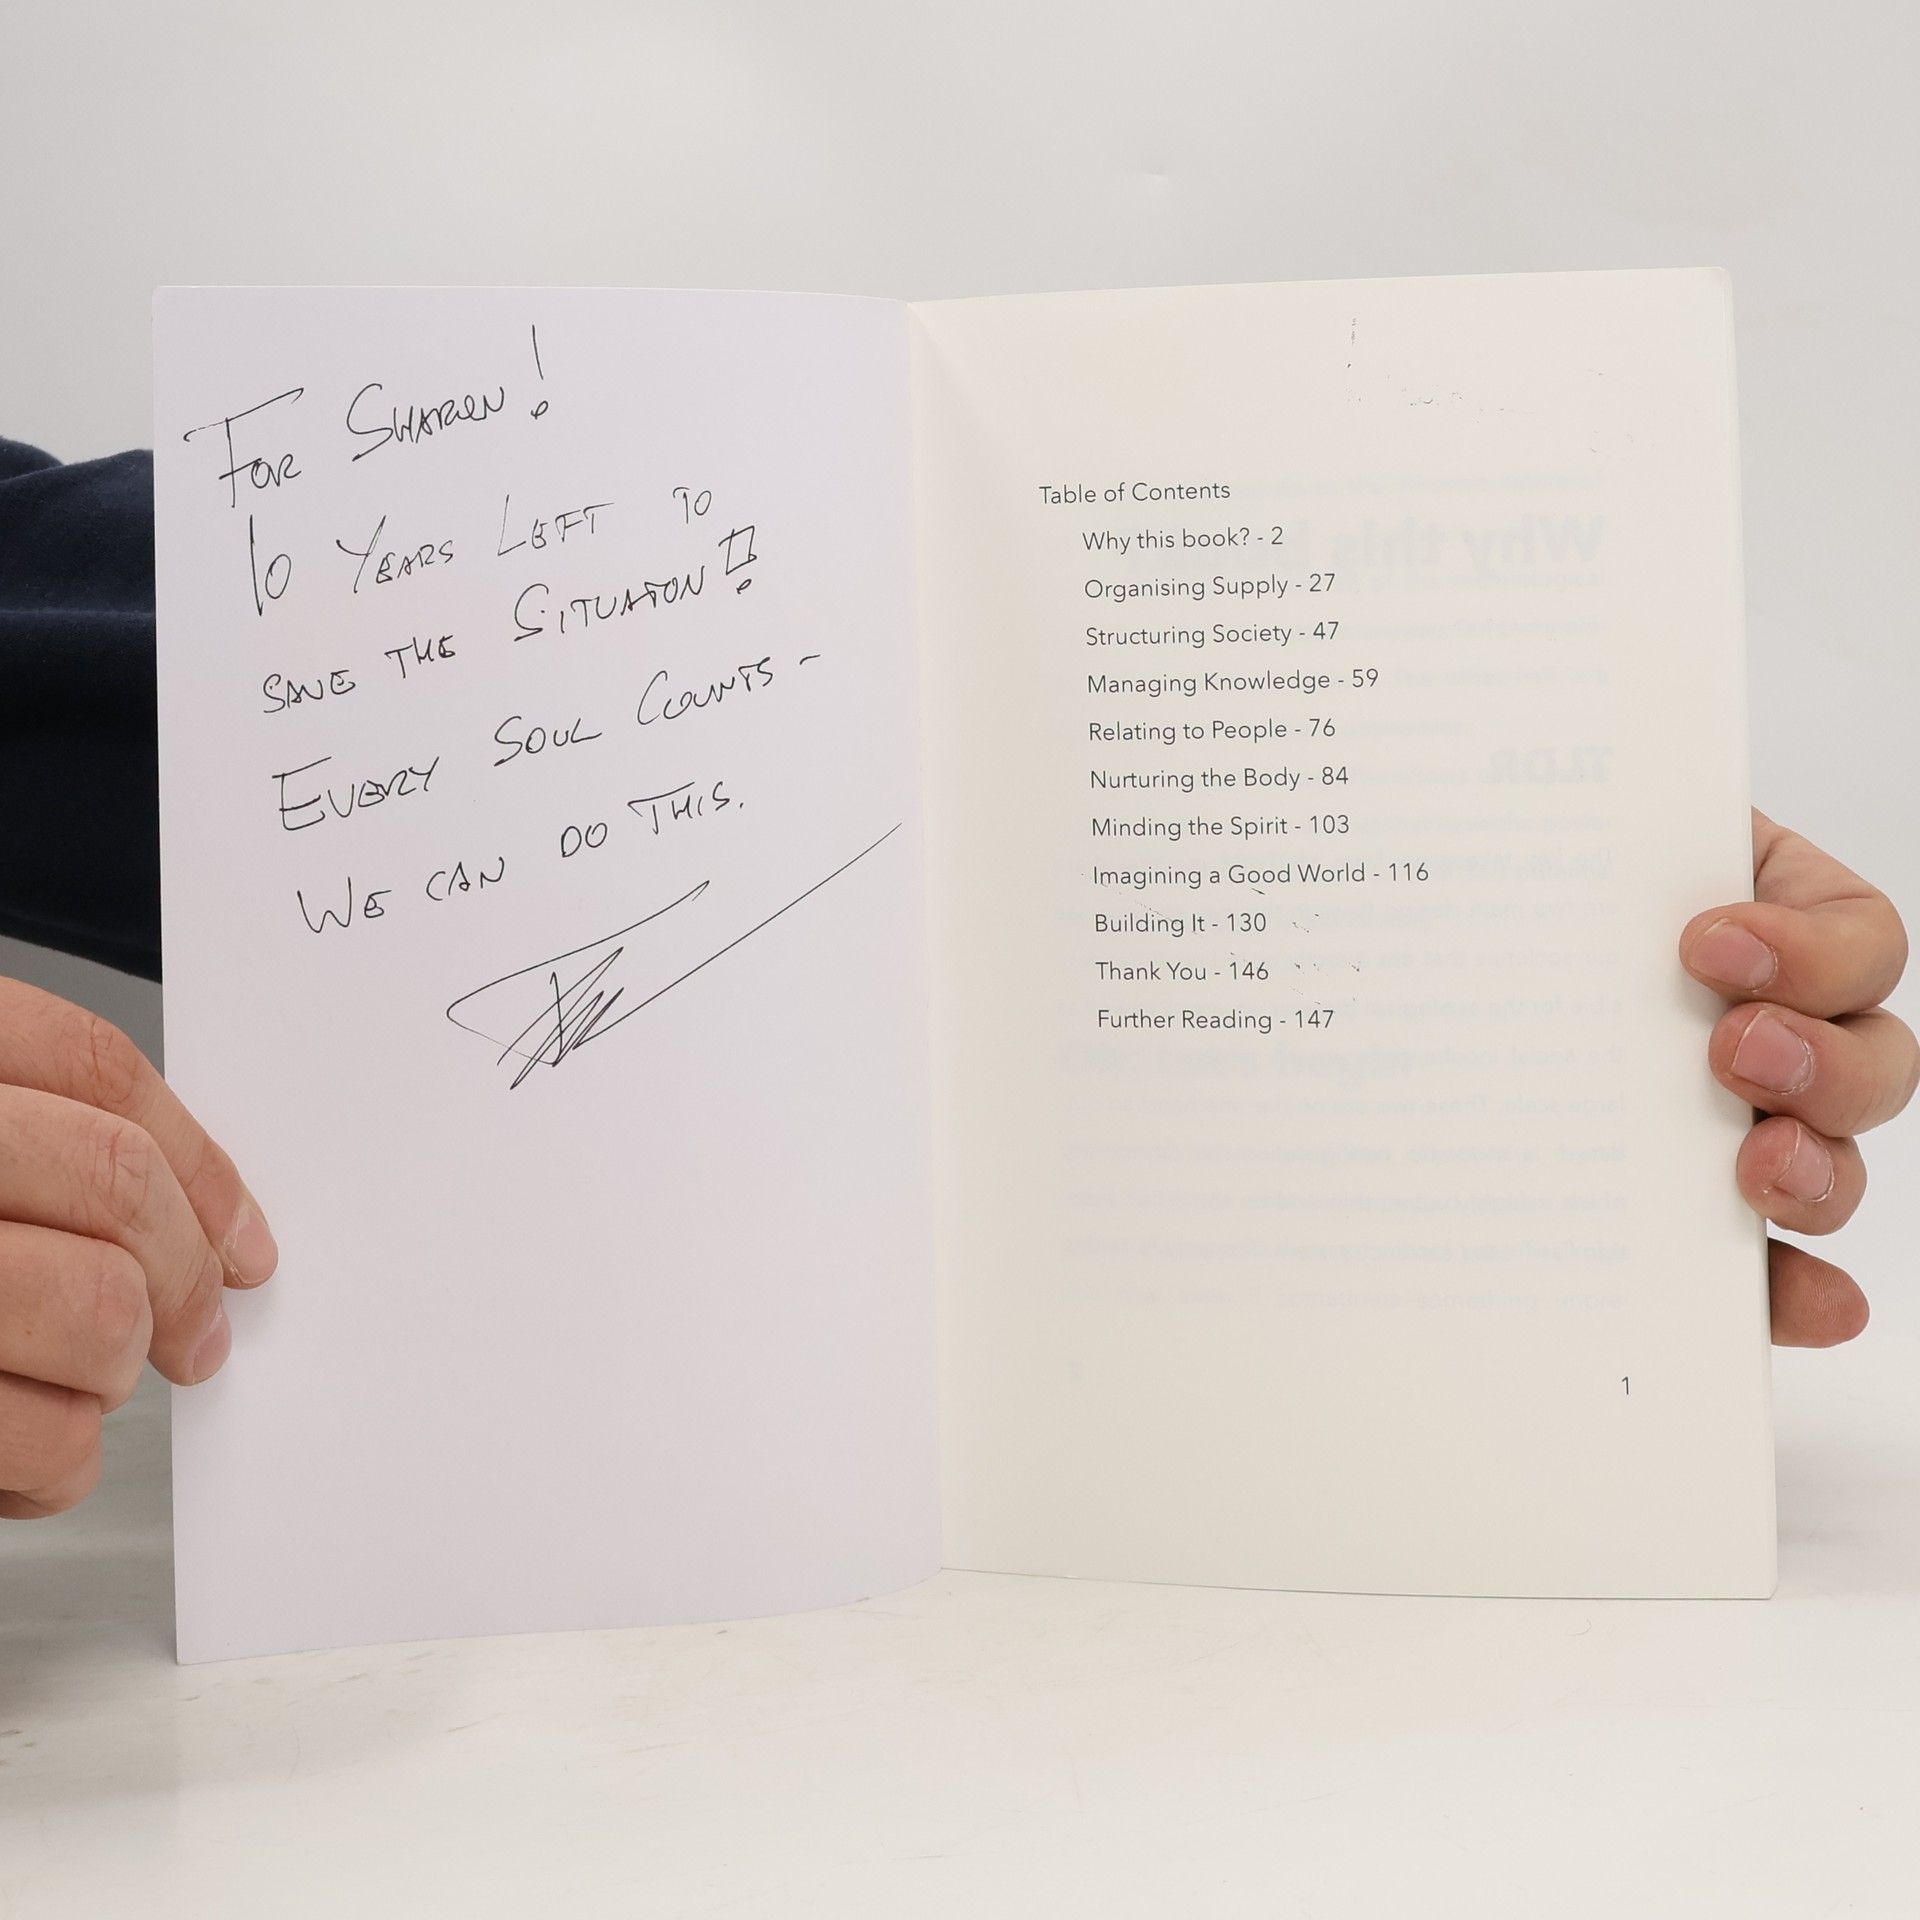 For Sharon!
10 Years Left to
save the Situation!
Every Soul Counts -
We can do this.
Table of Contents
Why this book? - 2
Organising Supply - 27
Structuring Society - 47
Managing Knowledge - 59
Relating to People - 76
Nurturing the Body - 84
Minding the Spirit - 103
Imagining a Good World - 116
Building It - 130
Thank You - 146
Further Reading - 147
1